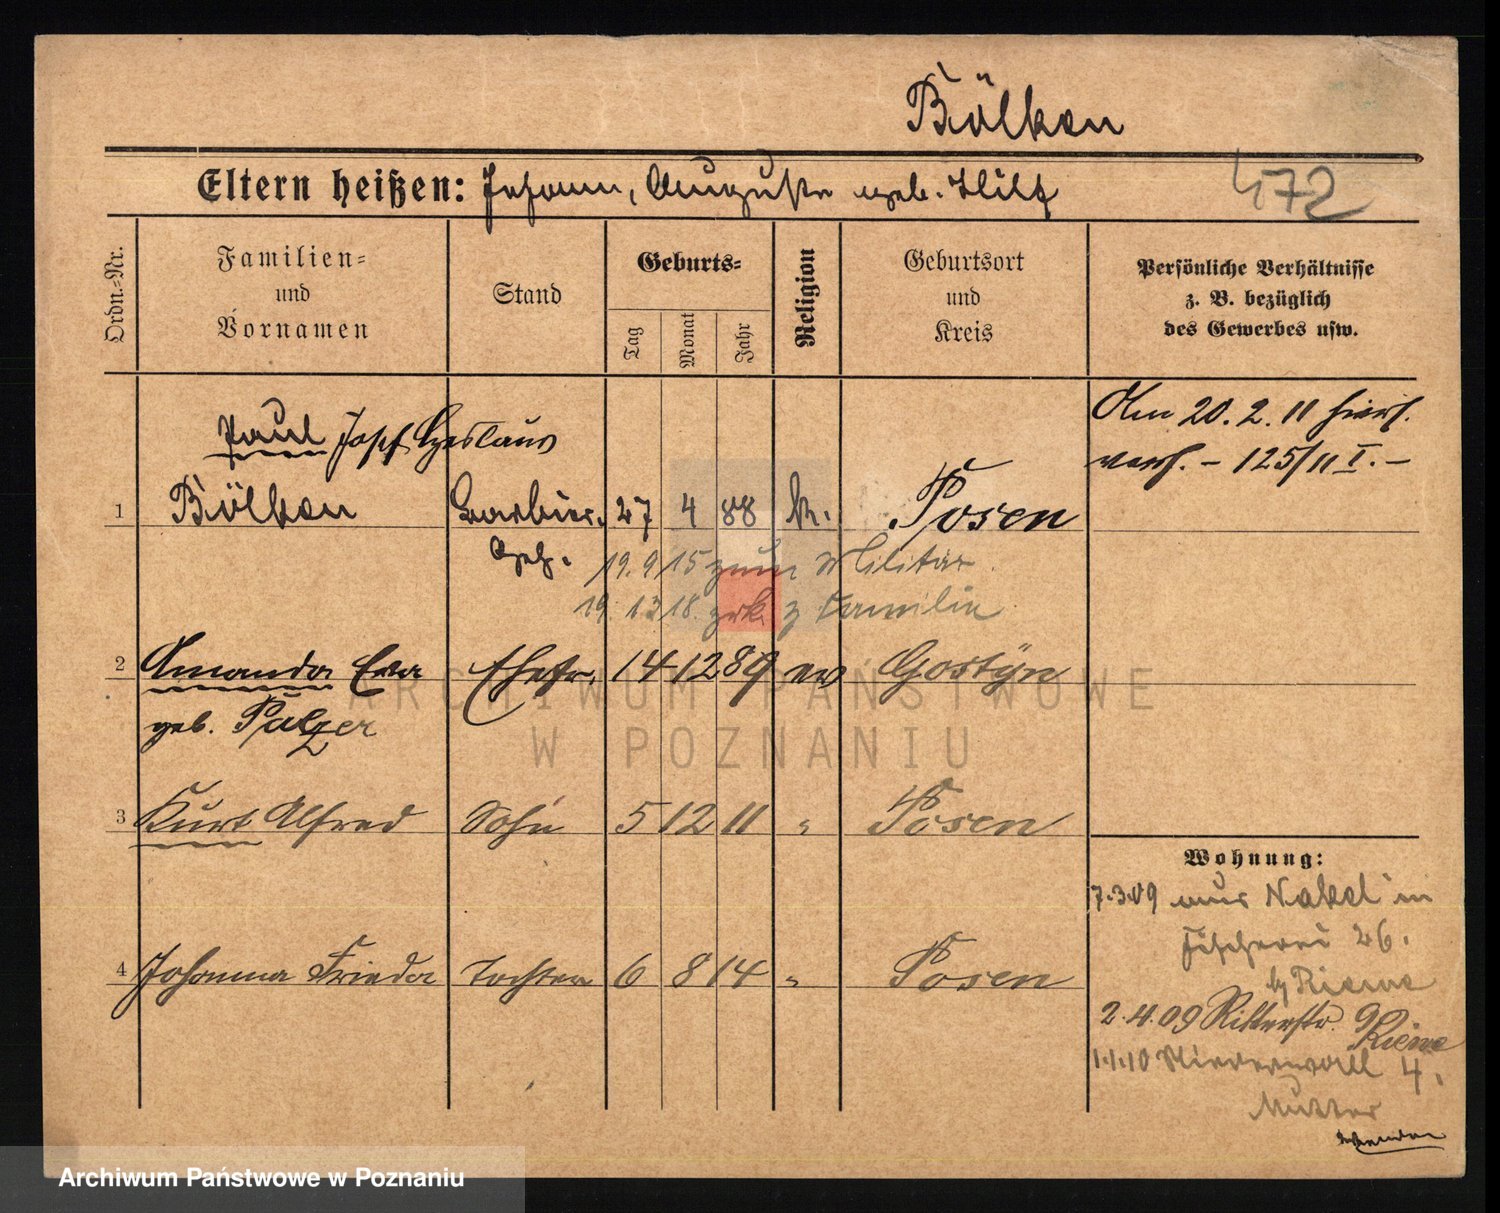 Bölkon
Eltern heißen: Johann, Auguste geb. Hilf
472
Ordn.-Nr.
Familien-
und
Vornamen
Stand
Geburts-
Tag
Monat
Jahr
Religion
Geburtsort
und
Kreis
Persönliche Verhältnisse
z. B. bezüglich
des Gewerbes usw.
Am 20. 2. 11 hiers.
verh. – 125/11 I. –
Paul Josef Czeslaus
1 Bölkon Barbier. 27 4 88 k. Posen
Geh.
19. 9. 15 zum Militär.
19. 13 18. zrk. z Familie
2 Amanda Eva Ehefr. 14 12 89 ev Gostyn
geb. Pulzer
3 Kurt Alfred Sohn 5 12 11 " Posen
4 Johanna Frieda Tochter 6 8 14 " Posen
Wohnung:
7.3.09 aus Nakel in
Fischerei 26.
by Rieme
2.4.09 Ritterstr. 9
Rieme
1.1.10 Niederwall 4.
Mutter
wenden
ARCHIWUM PAŃSTWOWE
W POZNANIU
Archiwum Państwowe w Poznaniu